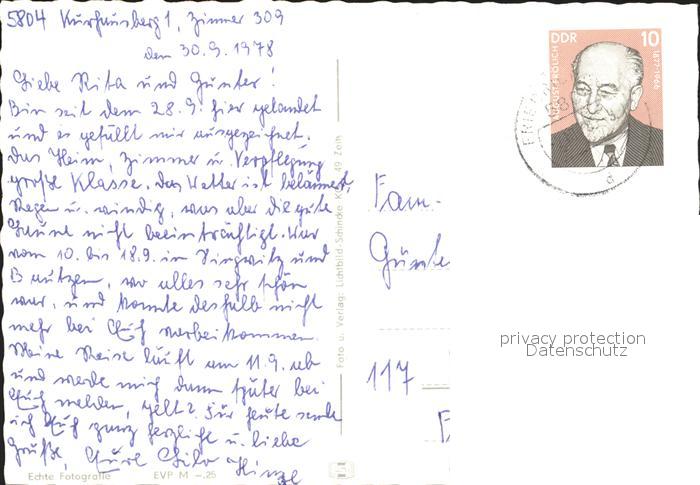 5804 Kurhausberg 1, Zimmer 309
den 30.9.1978
Liebe Rita und Günter!
Bin seit dem 28.9. hier gelandet
und es gefällt mir ausgezeichnet.
Das Heim, Zimmer u. Verpflegung
große Klasse. Das Wetter ist belämmert,
Regen u. windig, was aber die gute
Laune nicht beeinträchtigt. War
vom 10. bis 18.9. in Singwitz und
Bautzen, wo alles sehr schön
war, und konnte deshalb nicht
mehr bei Euch vorbeikommen.
Meine Reise läuft am 11.9. ab
und werde mich dann später bei
Euch melden, gelt? Für heute sende
ich Euch ganz herzliche u. liebe
Grüße, Eure
Echte Fotografie EVP M -.25
Foto u. Verlag: Luftbild-Schincke KG
DDR 10
AUGUST FRÖLICH
1877-1966
Fam.
Günte
117
privacy protection
Datenschutz